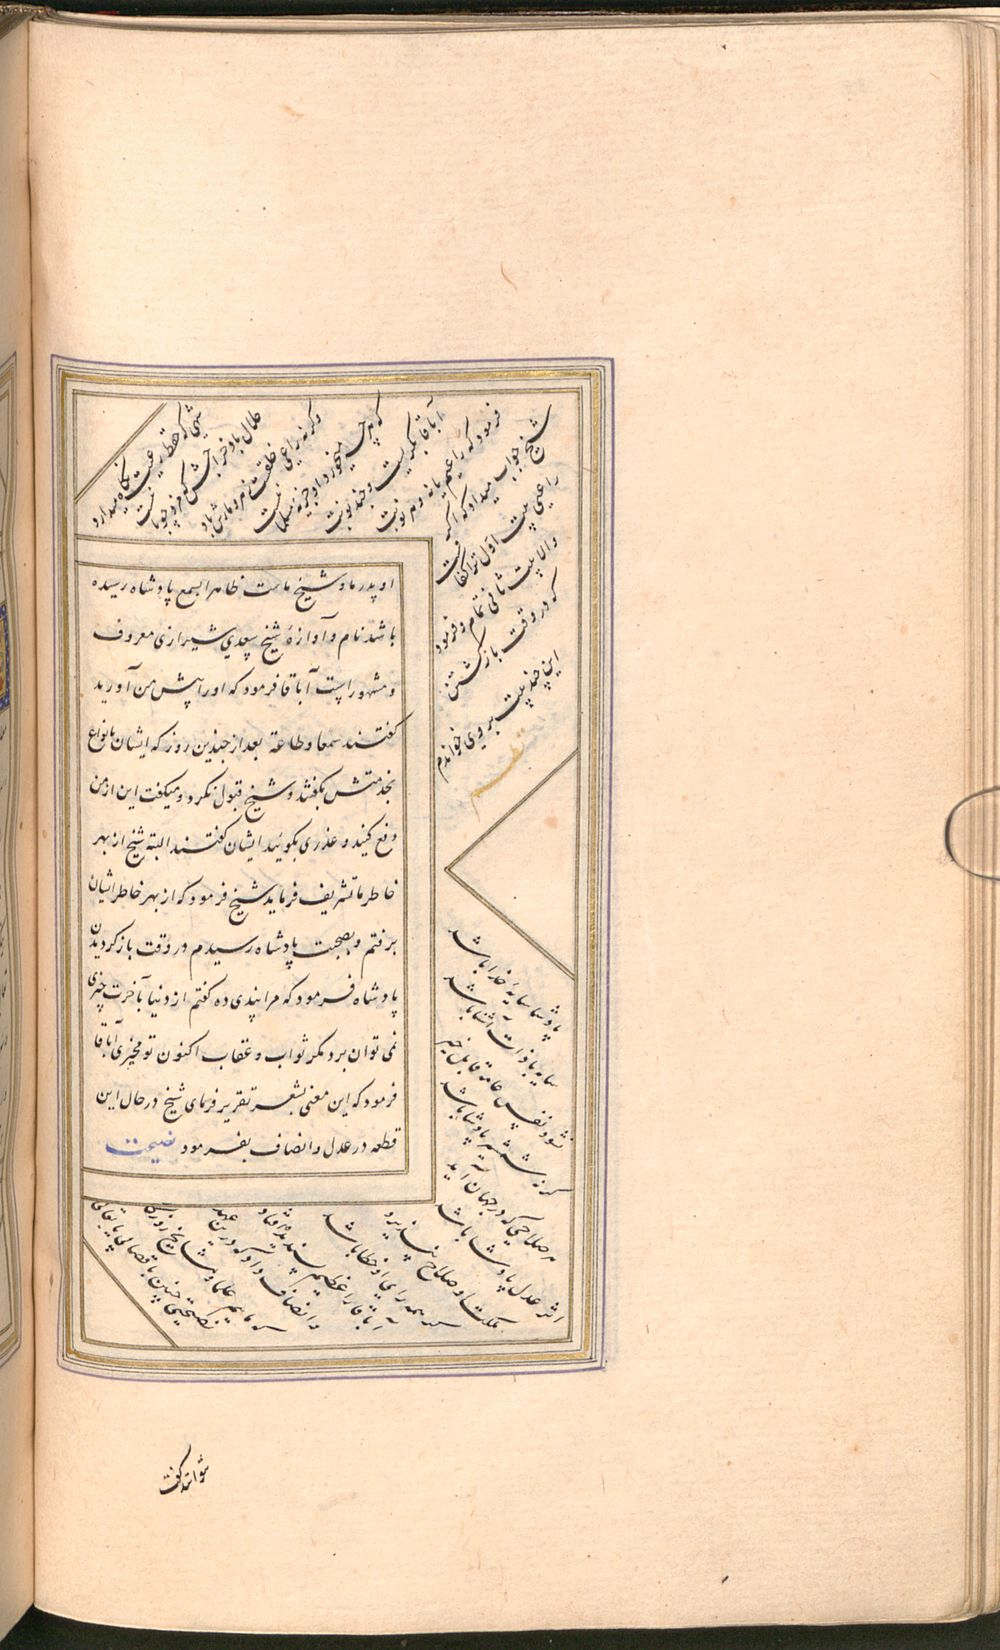 او پدر ما و شیخ ماست ظاهرا بسمع پادشاه رسیده
باشد نام و آوازهٔ شیخ سعدی شیرازی معروف
و مشهور است آباقا فرمود که او را پیش من آورید
گفتند سمعا و طاعة بعد از چندین روز که ایشان بانواع
بخدمتش بگفتند و شیخ قبول نکرد و میگفت این از من
دفع کنید و عذری بگوئید ایشان گفتند البته شیخ از بهر
خاطر ما تشریف فرماید شیخ فرمود که از بهر خاطر ایشان
برفتم و بصحبت پادشاه رسیدم در وقت بازگردیدن
پادشاه فرمود که مرا پندی ده گفتم از دنیا بآخرت چیزی
نمی توان برد مگر ثواب و عقاب اکنون تو مخیری آباقا
فرمود که این معنی بشعر تقریر فرمای شیخ در حال این
قطعه در عدل و انصاف بفرمود نصیحت
شهی که حفظ رعیت نگاه میدارد
حلال باد خراجش که مزد چوپانیست
وگرنه راعی خلقست زهر مارش باد
که هر چه میخورد او جزیه مسلمانیست
آباقا بگریست و چند نوبت
فرمود که راعیم یا نه و هر نوبت
شیخ جواب میداد که اگر
راعیی بیت اول ترا کفافست
والا بیت ثانی تمام و فرمود
که در وقت بازگشتن
این چند بیت بر وی خواندم
نظم
پادشا سایهٔ خدا باشد
سایه با ذات آشنا باشد
نشود نفس عامه قابل خیر
گر نه شمشیر پادشا باشد
هر صلاحی که در جهان آید
اثر عدل پادشا باشد
مملکت او صلاح نپذیرد
گر همه رای او خطا باشد
آباقا را عظیم پسندیده افتاد
و انصاف داد که در این عهد
که ماییم علما و مشایخ روزگار
نصیحتی چنین با قصابی یا بقالی
نتوانند گفت